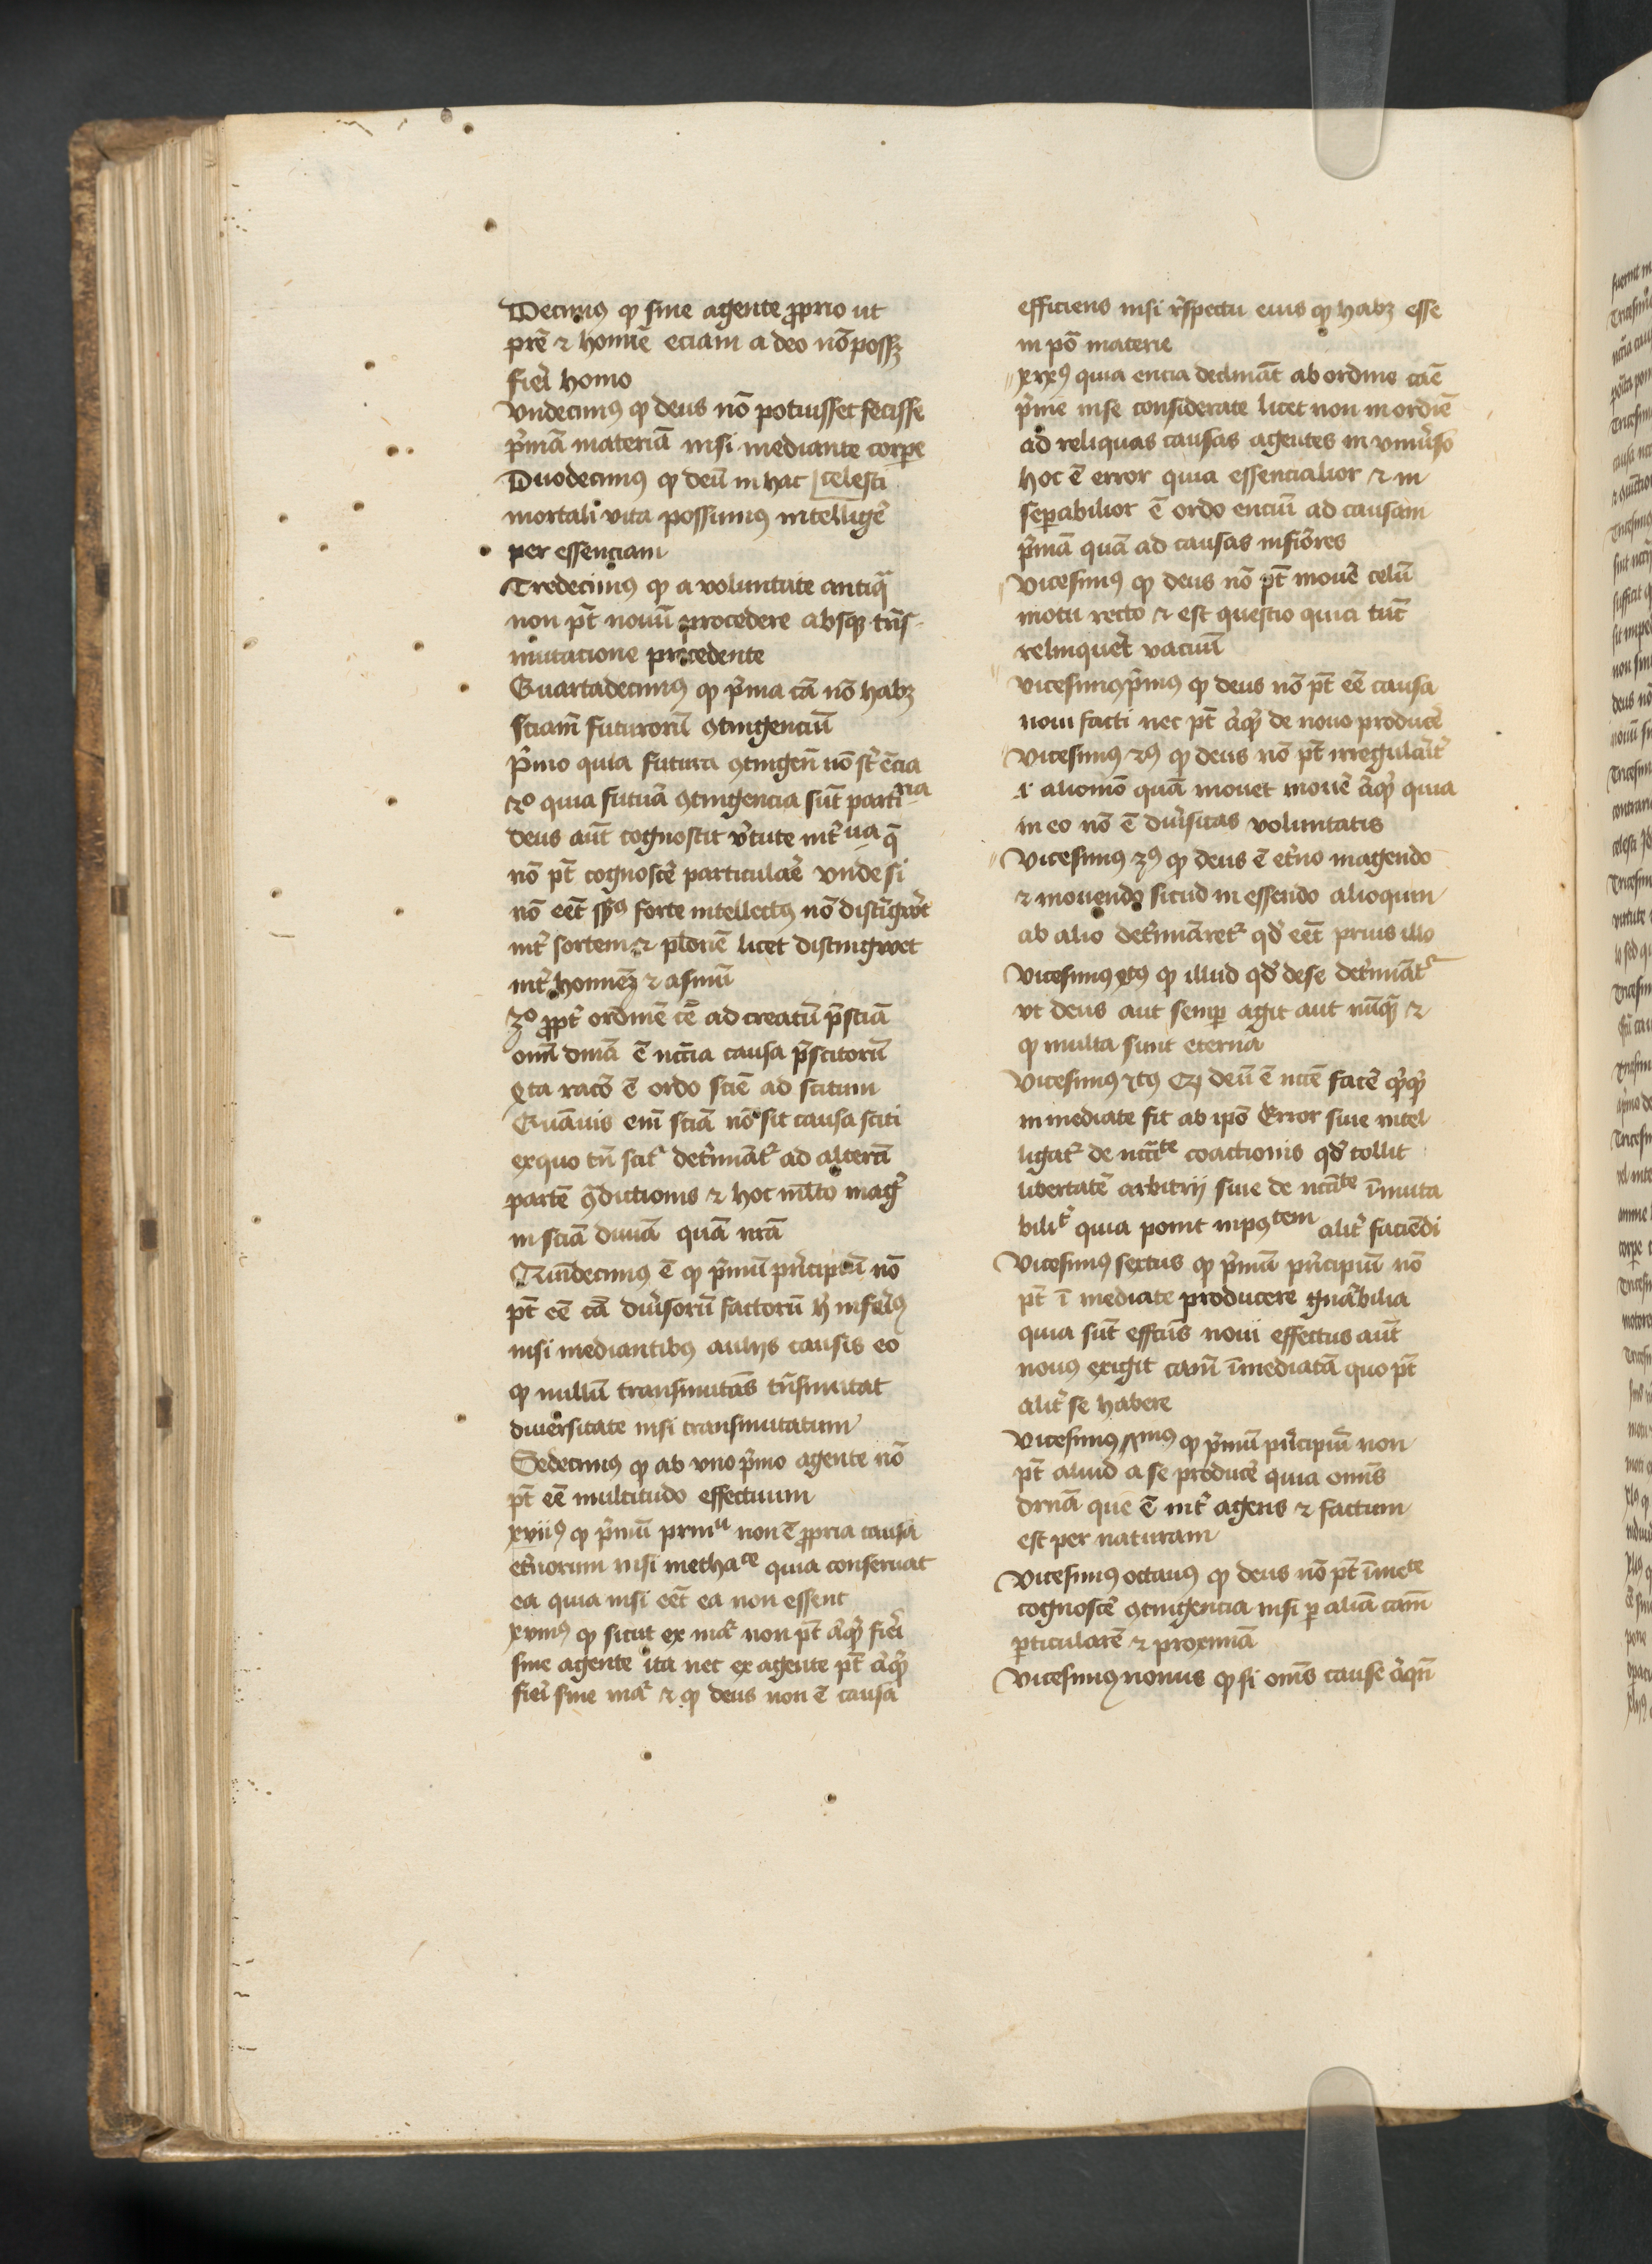 Decimꝯ ꝙ sine agente ꝓprio ut
prē ⁊ homīe eciam a deo nō possꝫ
fieri homo
Vndecimꝯ ꝙ deus nō potuisset fecisse
pͥmā materiā nisi mediante corꝑe
Duodecimꝯ ꝙ deū in hac [celesti
mortali vita possumꝯ intelligeͬ
per essenciam
Tredecimꝯ ꝙ a voluntate antiqᷓ
non pt̄ nouū procedere absqꝫ trās
mutacione precedente
Quartadecimꝯ ꝙ pͥma cā nō habꝫ
sciam̄ futurorū ꝯtingenciū
pͥmo quia futura ꝯtingen̄ nō st̄ encia
2o quia futurā ꝯtingencia sūt particularia
deus aūt cognoscit vͥtute intͥua q̄
nō pt̄ cognosceͬ particulareͬ vnde si
nō eēt spꝯ forte intellectꝯ nō distīgweͬt
intͥ sortem ⁊ platonē licet distingweet
intͥ hominēꝫ ⁊ asinū
3o ꝓptͥ ordinē cē ad creatū pͥsciā
om̄ diuīā ē nccīa causa pͥscitorū
4ta racō ē ordo scīe ad scitum
Quāuis enī sciā nō sit causa sciti
exquo tn̄ scitͬ detͥmīatͬ ad alterā
partē ꝯᷓdictionis ⁊ hoc mlto magͥ
in sciā diuīā quā nrā
Quīdecimꝯ ē ꝙ pͥmū pͥncipiū nō
pt̄ eē cā diuͥsorū factorū hͥ inferiꝯ
nisi mediantibꝯ aliis causis eo
ꝙ nullū transmutās trāsmutat
diuersitate nisi transmutatum
Sedecimꝯ ꝙ ab vno pͥmo agente nō
pt̄ eē multitudo effectuum
xviiꝯ ꝙ pͥmū prin non ē ꝓpria causa
etͥnorum nisi metha quia conseruat
ea quia nisi eēt ea non essent
xviiiꝯ ꝙ sicut ex matͥ non pt̄ aͥqͥd fieri
sine agente ita nec ex agente pt̄ aͥqͥd
fieri sine matͥ ⁊ ꝙ deus non ē causa
efficiens nisi rͥspectu eius ꝙ habꝫ esse
in po materie
xixꝯ quia encia declināt ab ordine cāe
pͥme in se considerate licet non in ordiē
ad reliquas causas agentes in vniuͥso
hoc ē error quia essencialior ⁊ in
seꝑabilior ē ordo enciū ad causam
pͥmā quā ad causas infͥores
Vicesimꝯ ꝙ deus nō pt̄ mouē celū
motu recto ⁊ est questio quia tūc
relinqueͬt vacuū
Vicesimꝯpͥmꝯ ꝙ deus nō pt̄ eē causa
noui facti nec pt̄ aͥqͥd de nouo produceͬ
Vicesimꝯ 2ꝯ ꝙ deus nō pt̄ irregulāritͥ
i alio mō quā mouet mouē aͥqͥd quia
in eo nō ē diuͥsitas voluntatis
Vicesimꝯ 3ꝯ ꝙ deus ē etͥno in agendo
⁊ mouendo sicud in essendo alioquin
ab alio detͥmīaretͬ qd̄ eēt prius illo
Vicesimꝯ 4tꝯ ꝙ illud qd̄ de se detͥmīatͬ
vt deus aut semꝑ agit aut nūqᷓ ⁊
ꝙ multa sunt eterna
Vicesimꝯ 5tꝯ ꝙ deū ē nccē faceͬ qͥqͥd
inmediate fit ab ipo Error siue intel
ligatͬ de nccīte coactionis qd̄ tollit
libertatē arbitrij siue de nccīte īmuta
bilitͥ quia ponit impotem alitͥ faciēdi
Vicesimꝯ sextus ꝙ pͥmū pͥncipiū nō
pt̄ ī mediate producere gnāabilia
quia sūt effectus noui effectus aūt
nouꝯ exigit cam̄ īmediatā quo pt̄
alitͥ se habere
Vicesimꝯ 7mꝯ ꝙ pͥmū pͥncipiū non
pt̄ aliud a se produceͬ quia omīs
drnā que ē intͥ agens ⁊ factum
est per naturam
Vicesimꝯ octauꝯ ꝙ deus nō pt̄ īmete
cognosceͬ ꝯtingencia nisi ꝑ aliā cam̄
ꝑticularē ⁊ proximā
Vicesimꝯ nonus ꝙ si omīs cause aͥqn̄